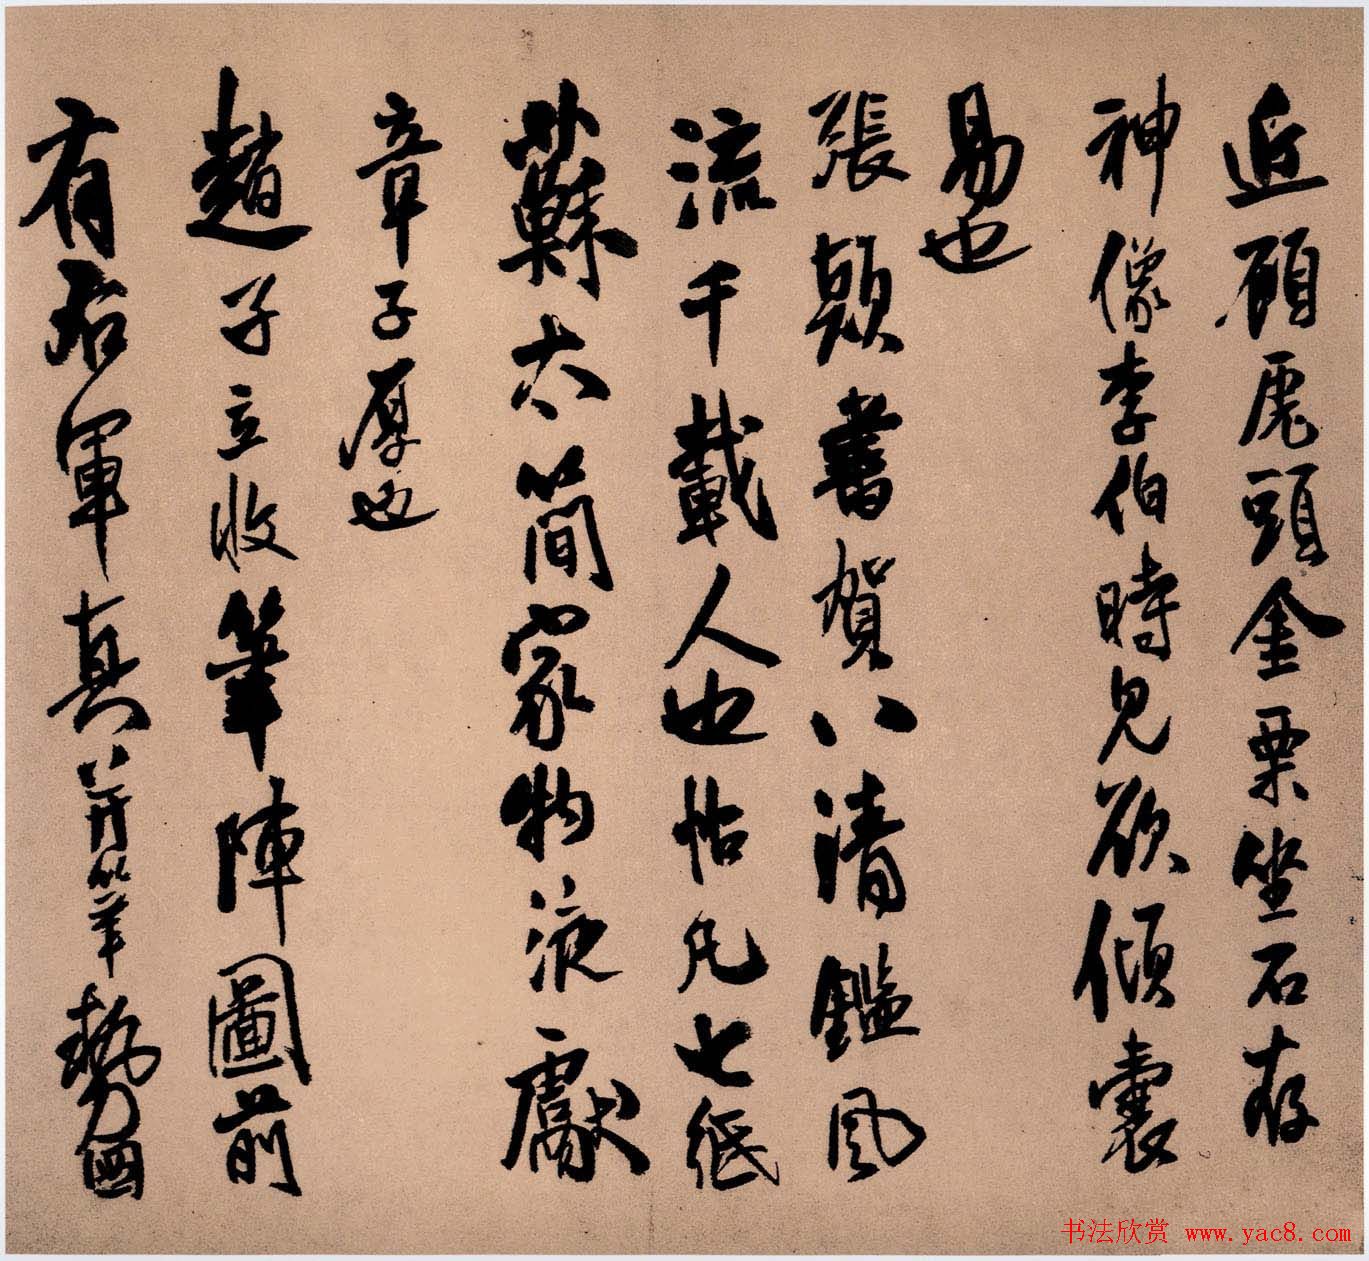 近顧虎頭金粟坐石存
神像李伯時見欲傾囊
易也
張顛書賀八清鑑風
流千載人也帖凡七紙
蘇太簡家物液獻
章子厚也
趙子立收筆陣圖前
有右軍真并筆勢圖
书法欣赏 www.yac8.com